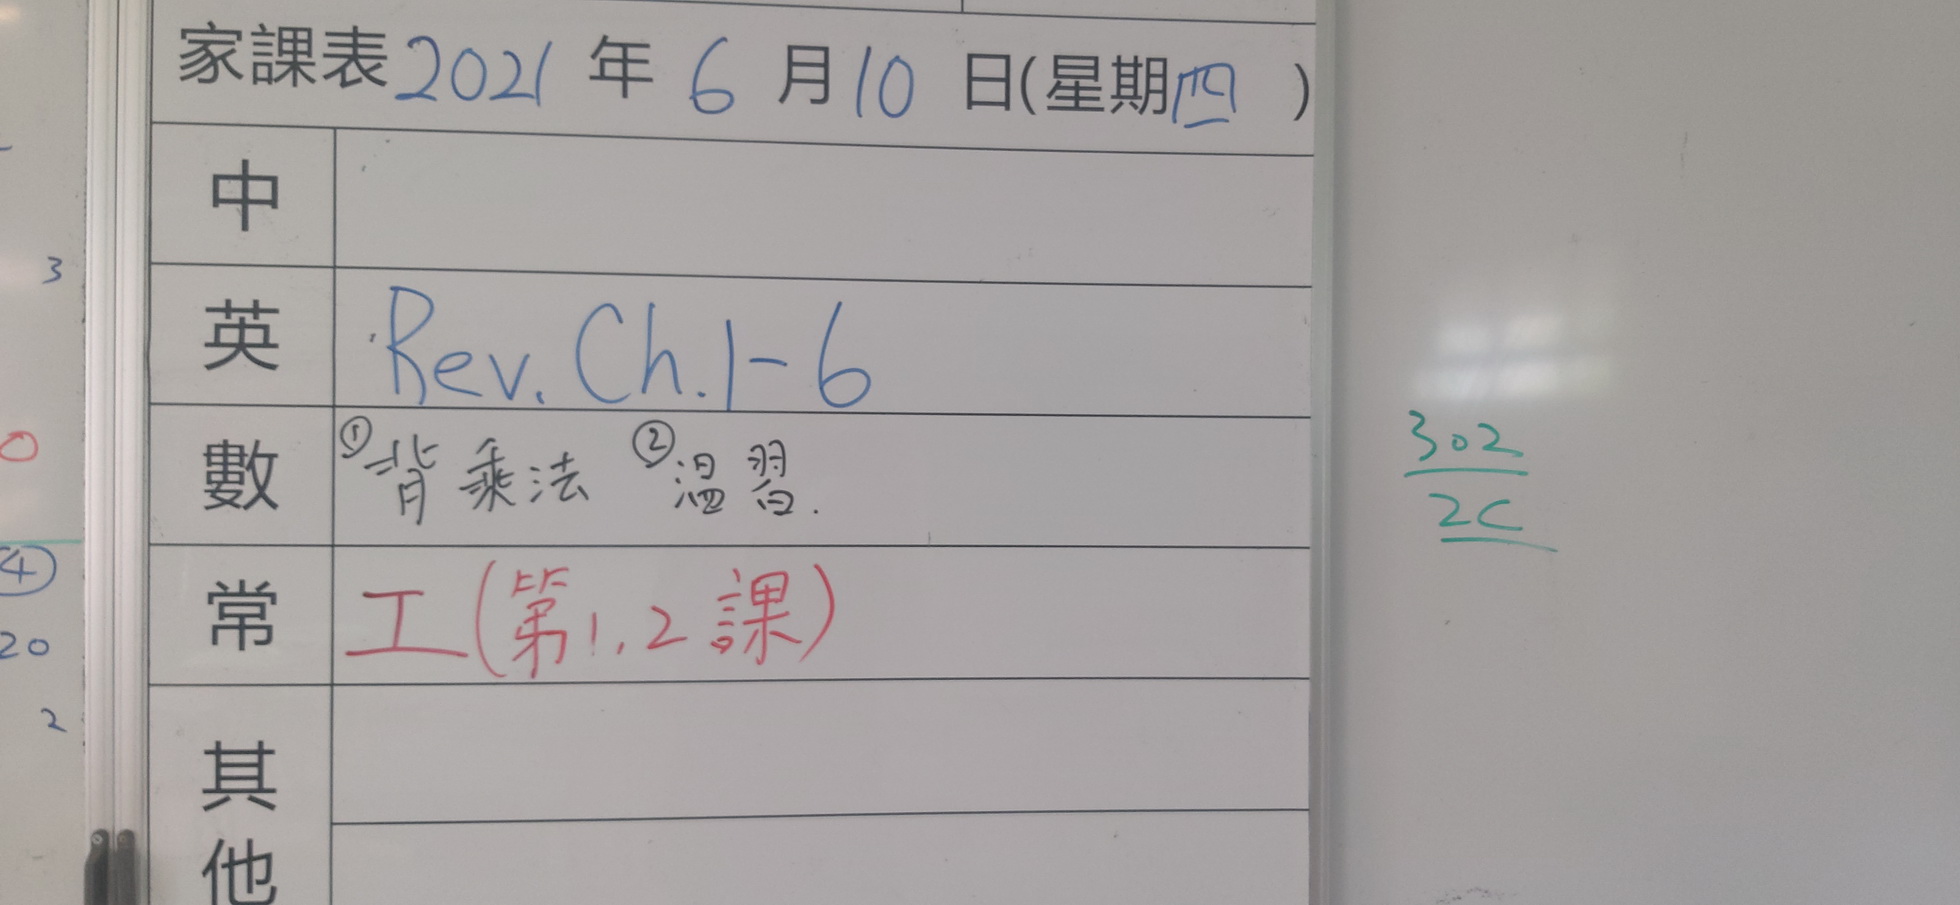 家課表2021年6月10日(星期四)
中
英 Rev. Ch.1-6
數 ①背乘法 ②溫習.
常 工(第1,2課)
其他
3
0
④
20
2
302
2C